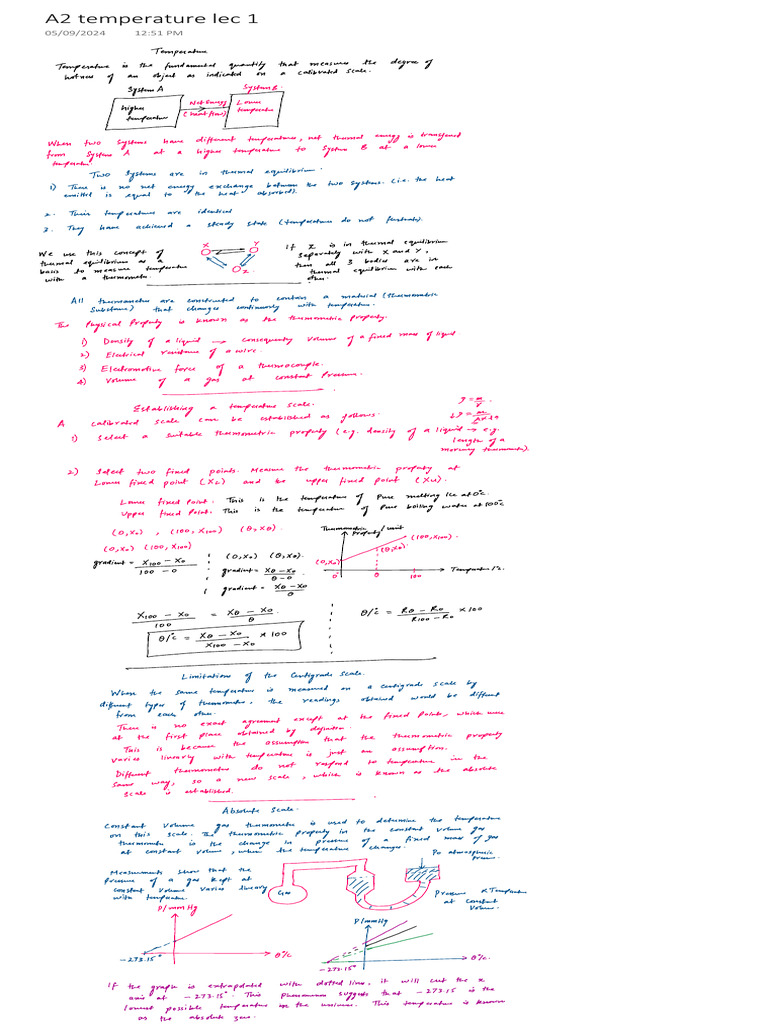 A2 temperature lec 1
05/09/2024 12:51 PM
Temperature
Temperature is the fundamental quantity that measures the degree of
hotness of an object as indicated on a calibrated scale.
System A
System B.
higher
temperature
Net Energy
(heat flow)
Lower
temperature
When two systems have different temperatures, net thermal energy is transferred
from System A at a higher temperature to System B at a lower
temperature
Two Systems are in thermal equilibrium.
1) There is no net energy exchange between the two systems. (i.e. the heat
emitted is equal to the heat absorbed).
2. Their temperatures are identical
3. They have achieved a steady state (temperatures do not
We use this concept of
thermal equilibrium as a
basis to measure temperature
with a thermometer.
X
Y
Z
If Z is in thermal equilibrium
separately with X and Y,
then all 3 bodies are in
thermal equilibrium with each
other.
All thermometers are constructed to contain a material (thermometric
Substance) that changes continuously with temperature.
The Physical Property is known as the thermometric property.
1) Density of a liquid → consequently volume of a fixed mass of liquid
2) Electrical resistance of a wire.
3) Electromotive force of a thermocouple.
4) Volume of a gas at constant Pressure.
Establishing a temperature scale.
A calibrated scale can be established as follows.
ρ = m/v
1) Select a suitable thermometric property (e.g. density of a liquid → e.g.
length of a
mercury thermometer).
2) Select two fixed points. Measure the thermometric property at
Lower fixed point (XL) and the upper fixed point (XU).
Lower fixed Point. This is the temperature of Pure melting Ice at 0°c.
Upper fixed Point. This is the temperature of Pure boiling water at 100°c
(0, X0) , (100, X100) (θ, Xθ).
(0, X0) (100, X100)
gradient = X100 - X0 / 100 - 0
(0, X0) (θ, Xθ).
gradient = Xθ - X0 / θ - 0
gradient = Xθ - X0 / θ
Thermometric
Property/unit
(100, X100)
(θ, Xθ)
(0, X0)
0°
θ
100
Temperature/°c.
X100 - X0 / 100 = Xθ - X0 / θ
θ/°c = Xθ - X0 / X100 - X0 × 100
θ/°c = Rθ - R0 / R100 - R0 × 100
Limitations of the Centigrade Scale.
When the same temperature is measured on a centigrade scale by
different types of thermometer, the readings obtained would be different
from each other.
There is no exact agreement except at the fixed Points, which were
at the first place obtained by definition.
This is because the assumption that the thermometric property
varies linearly with temperature is just an assumption.
Different thermometers do not respond to temperature in the
same way, so a new scale, which is known as the absolute
scale is established.
Absolute Scale.
Constant Volume gas thermometer is used to determine the temperature
on this scale. The thermometric property in the constant volume gas
thermometer is the change in pressure of a fixed mass of gas
at constant volume, when the temperature changes.
Measurements show that the
Pressure of a gas kept at
constant volume varies linearly
with temperature.
Gas
Po atmospheric
Pressure ∝ Temperature
at constant
Volume.
P/mmHg
-273.15°
θ/°c
P/mmHg
-273.15°
θ/°c.
If the graph is extrapolated with dotted line, it will cut the x
axis at -273.15°. This Phenomenon suggests that -273.15 is the
lowest possible temperature in the universe. This temperature is known
as the absolute zero.